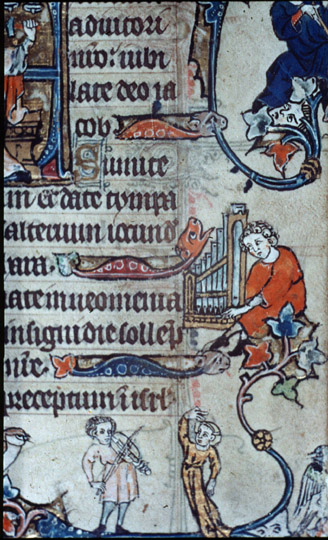 adiutori
nro: iubi
late deo ia
cob
Sumite
m et date tympa
alterium iocund
tara.
ate in neomenia
insigni die sollēp
receptum in isrl